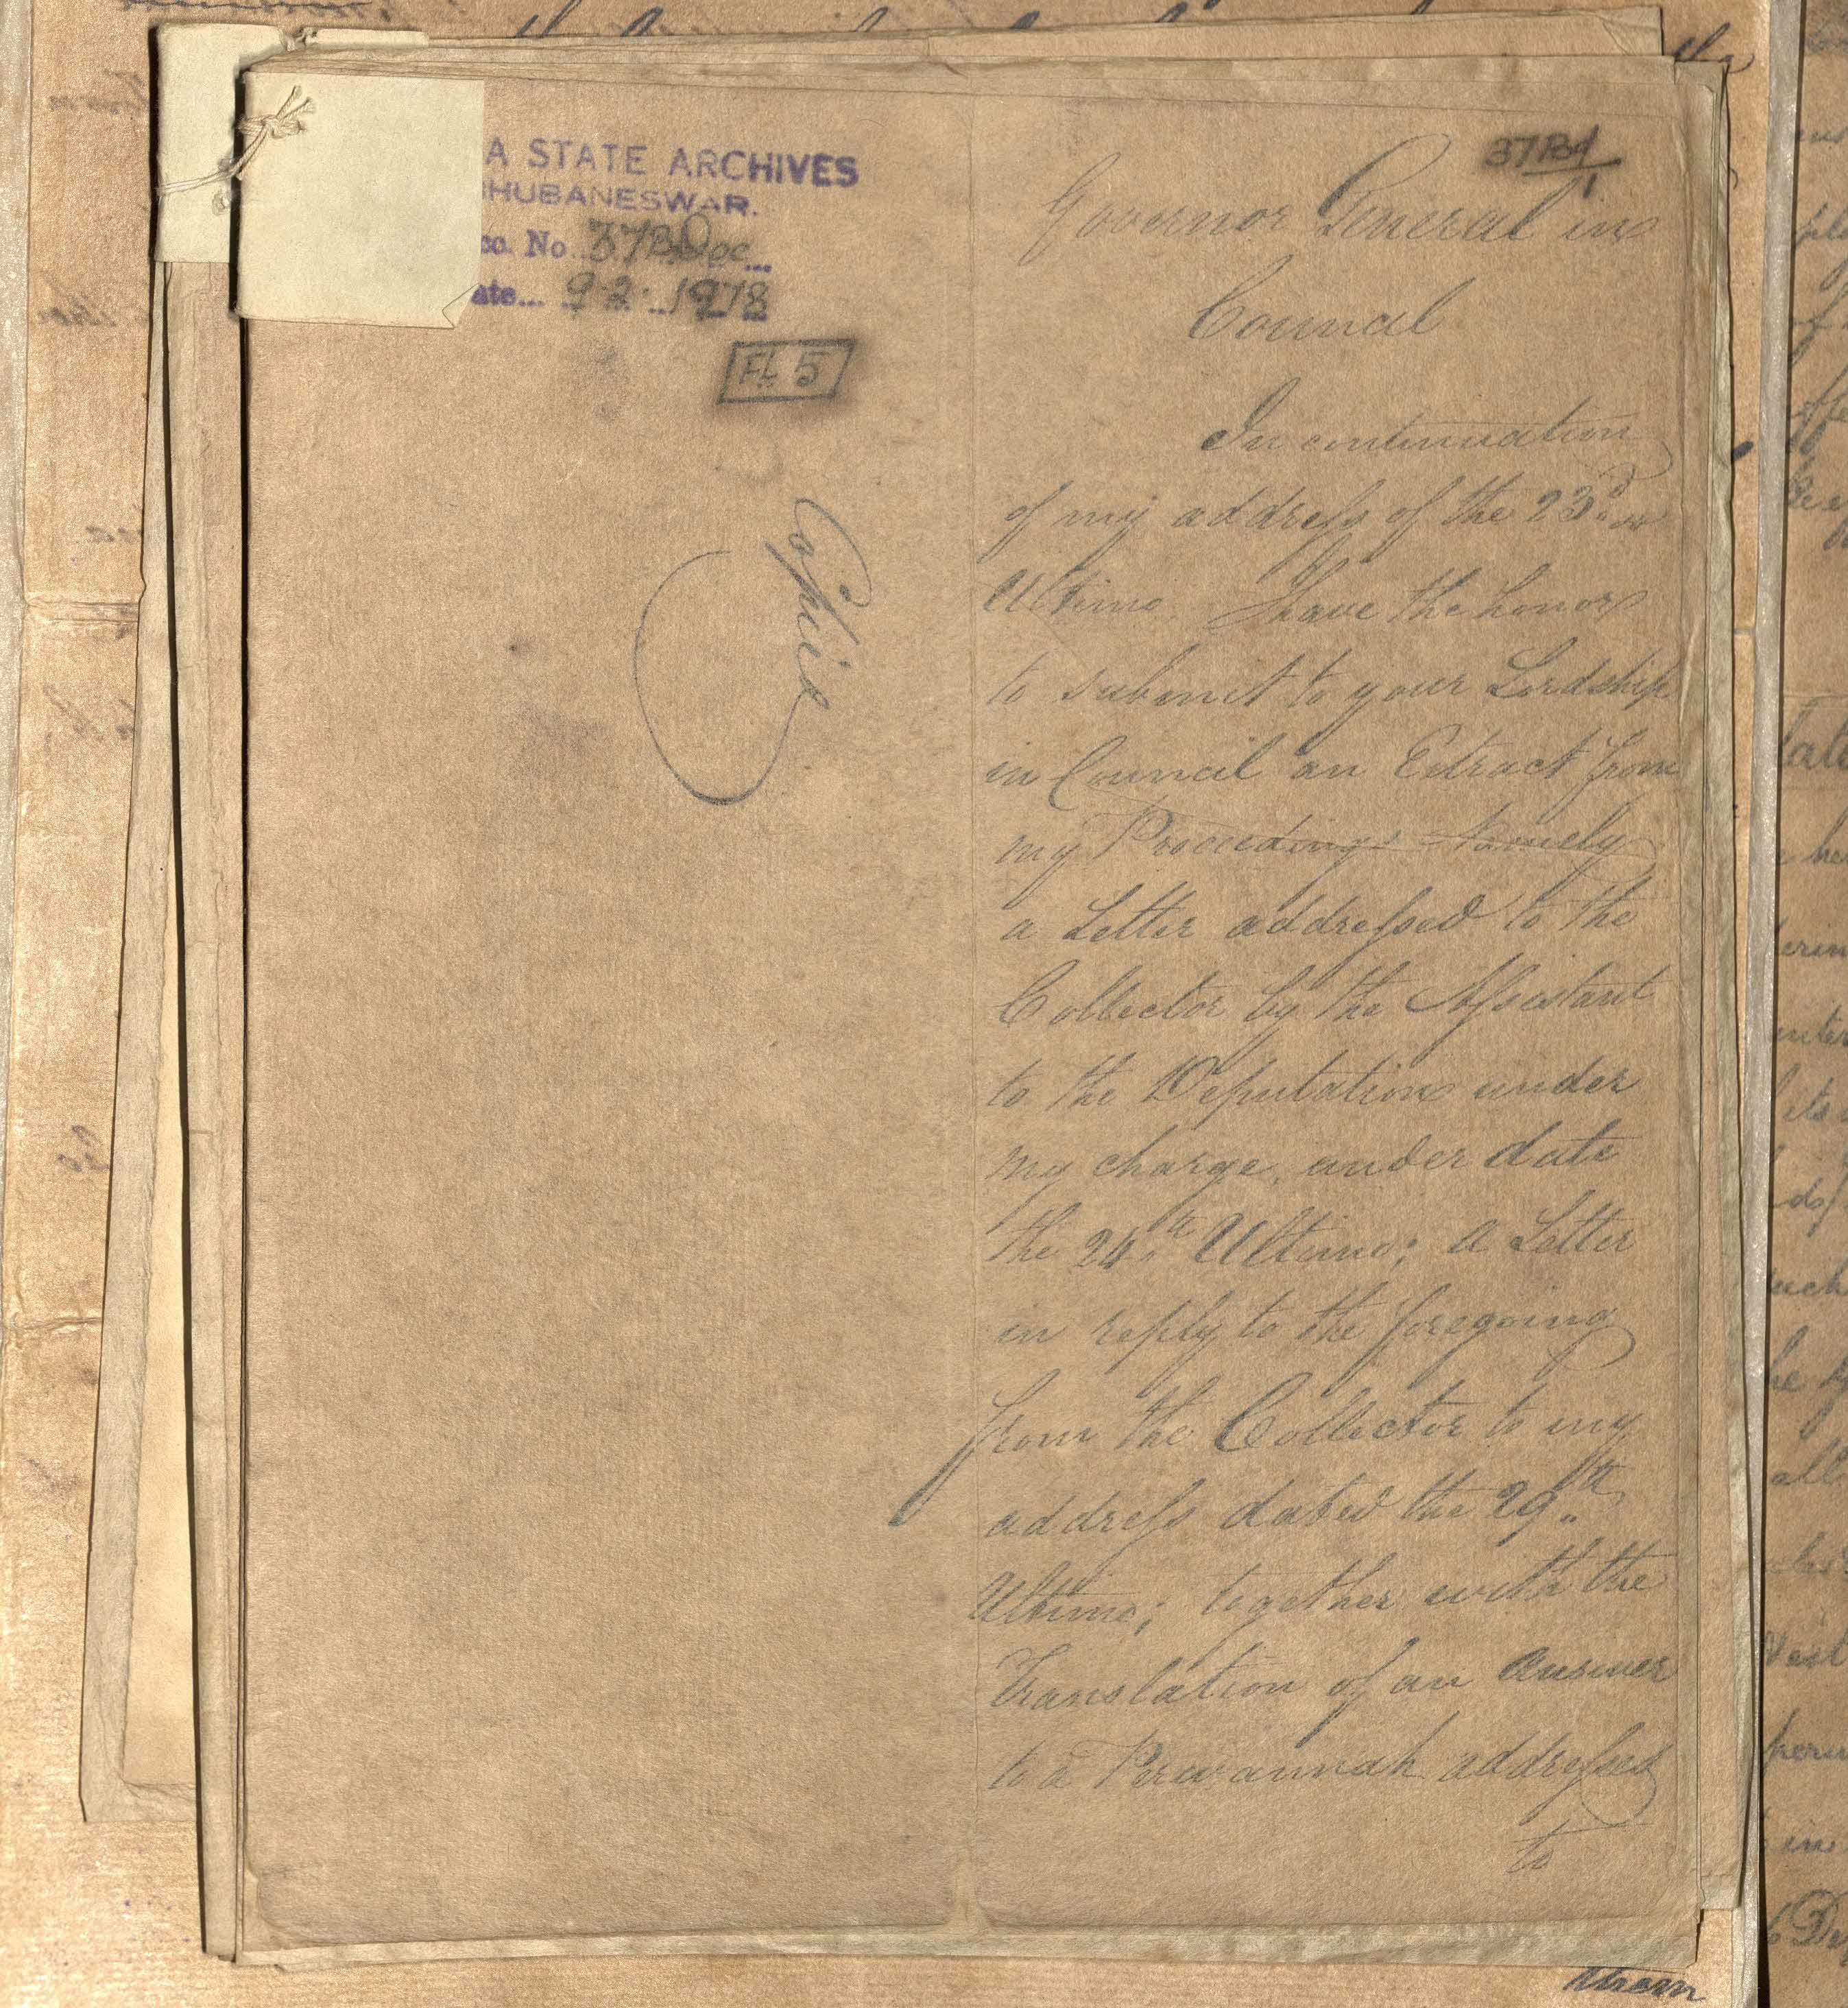 A STATE ARCHIVES
HUBANESWAR.
cc. No. 37BDoc
ate... 9.2.1978
FL 5
Copied
Governor General in
Council
In continuation
of my addreſs of the 23d
Ultimo I have the honor
to submit to your Lordship
in Council an Extract from
my Proceedings Namely
a Letter addreſsed to the
Collector by the Aſsistant
to the Deputation under
my charge, under date
the 24th Ultimo; a Letter
in reply to the foregoing
from the Collector to my
addreſs dated the 29th
Ultimo; together with the
Translation of an Answer
to a Perwannah addreſsed
to